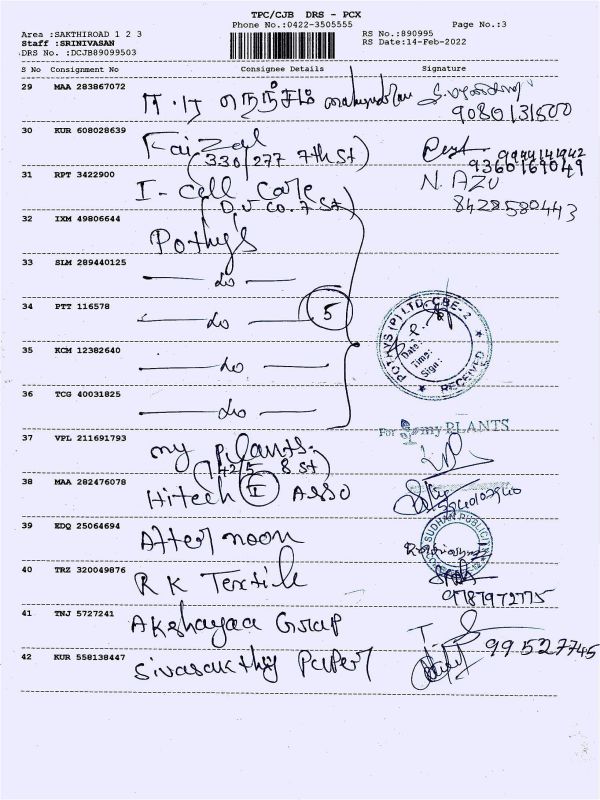 TPC/CJB DRS - PCX
Phone No.:0422-3505555
Page No.:3
Area :SAKTHIROAD 1 2 3
Staff :SRINIVASAN
DRS No. :DCJB89099503
RS No.:890995
RS Date:14-Feb-2022
S No Consignment No Consignee Details Signature
29 MAA 283867072
9080131500
30 KUR 608028639
Faizal
(330/277 7th St)
9944141942
9360169049
31 RPT 3422900
I-cell Care
(D.V Co. 7 St)
N. AZU
8428580443
32 IXM 49806644
Pothy's
33 SLM 289440125
— do —
34 PTT 116578
— do —
5
POTHYS (P) LTD. CBE-2
Date:
Time:
Sign:
RECEIVED
35 KCM 12382640
— do —
36 TCG 40031825
— do —
37 VPL 211691793
my plants.
(142/5 8 St)
For myPLANTS
38 MAA 282476078
Hitech I ASSO
39 EDQ 25064694
After noon
40 TRZ 320049876
R K Textile
9787972775
41 TNJ 5727241
Akshayaa Group
42 KUR 558138447
Sivasakthy Paper
99527745